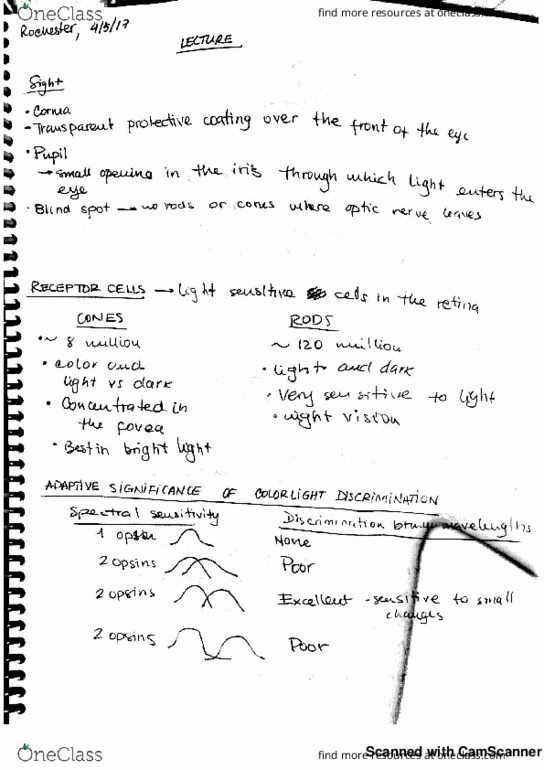 OneClass
find more resources at oneclass.com
Rochester, 4/5/17
LECTURE
Sight
• Cornea
- Transparent protective coating over the front of the eye
• Pupil
→ small opening in the iris through which light enters the
eye
• Blind spot → no rods or cones where optic nerve leaves
RECEPTOR CELLS → light sensitive cells in the retina
CONES
• ~ 8 million
• color and
light vs dark
• Concentrated in
the fovea
• Best in bright light
RODS
~ 120 million
• light and dark
• Very sensitive to light
• night vision
ADAPTIVE SIGNIFICANCE OF COLORLIGHT DISCRIMINATION
Spectral sensitivity
Discrimination btwn wavelengths
1 opsin
None
2 opsins
Poor
2 opsins
Excellent - sensitive to small
changes
2 opsins
Poor
OneClass
find more resources at oneclass.com
Scanned with CamScanner